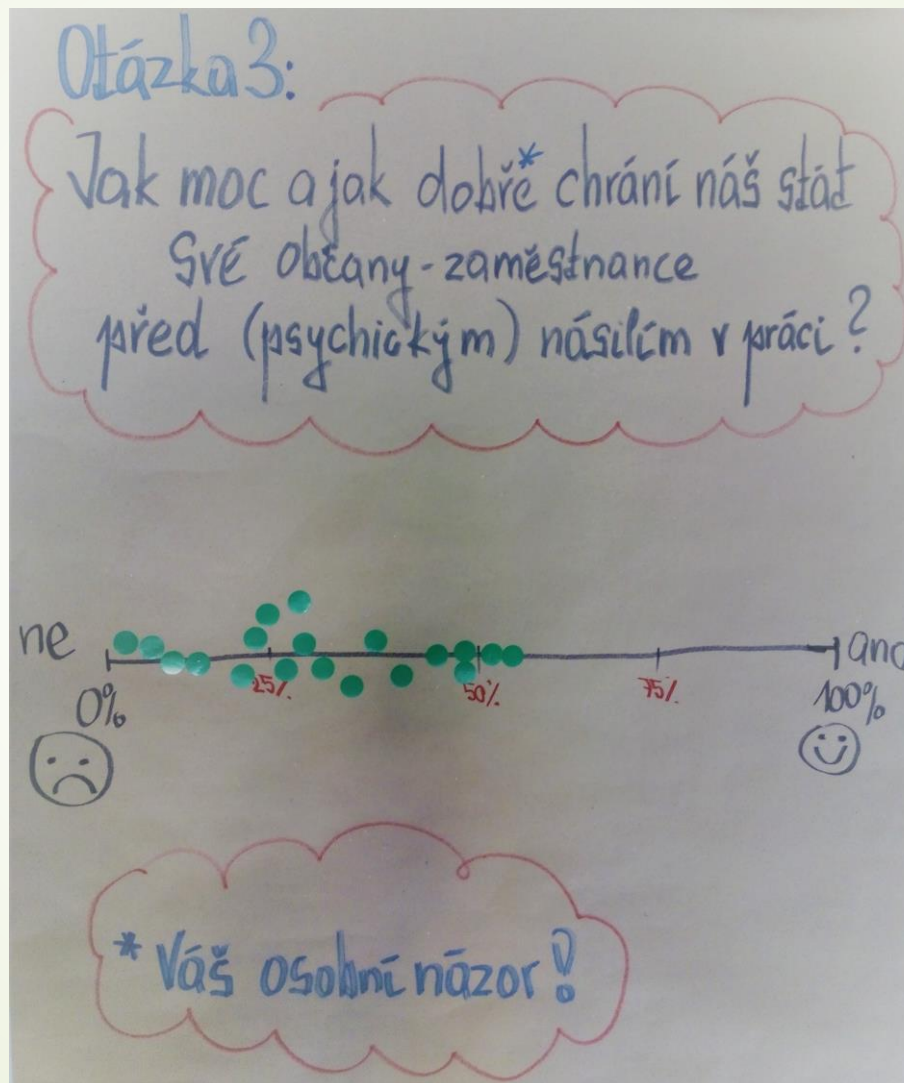 Otázka 3:
Jak moc a jak dobře* chrání náš stát
své občany - zaměstnance
před (psychickým) násilím v práci?
ne
ano
0%
25%
50%
75%
100%
* Váš osobní názor!